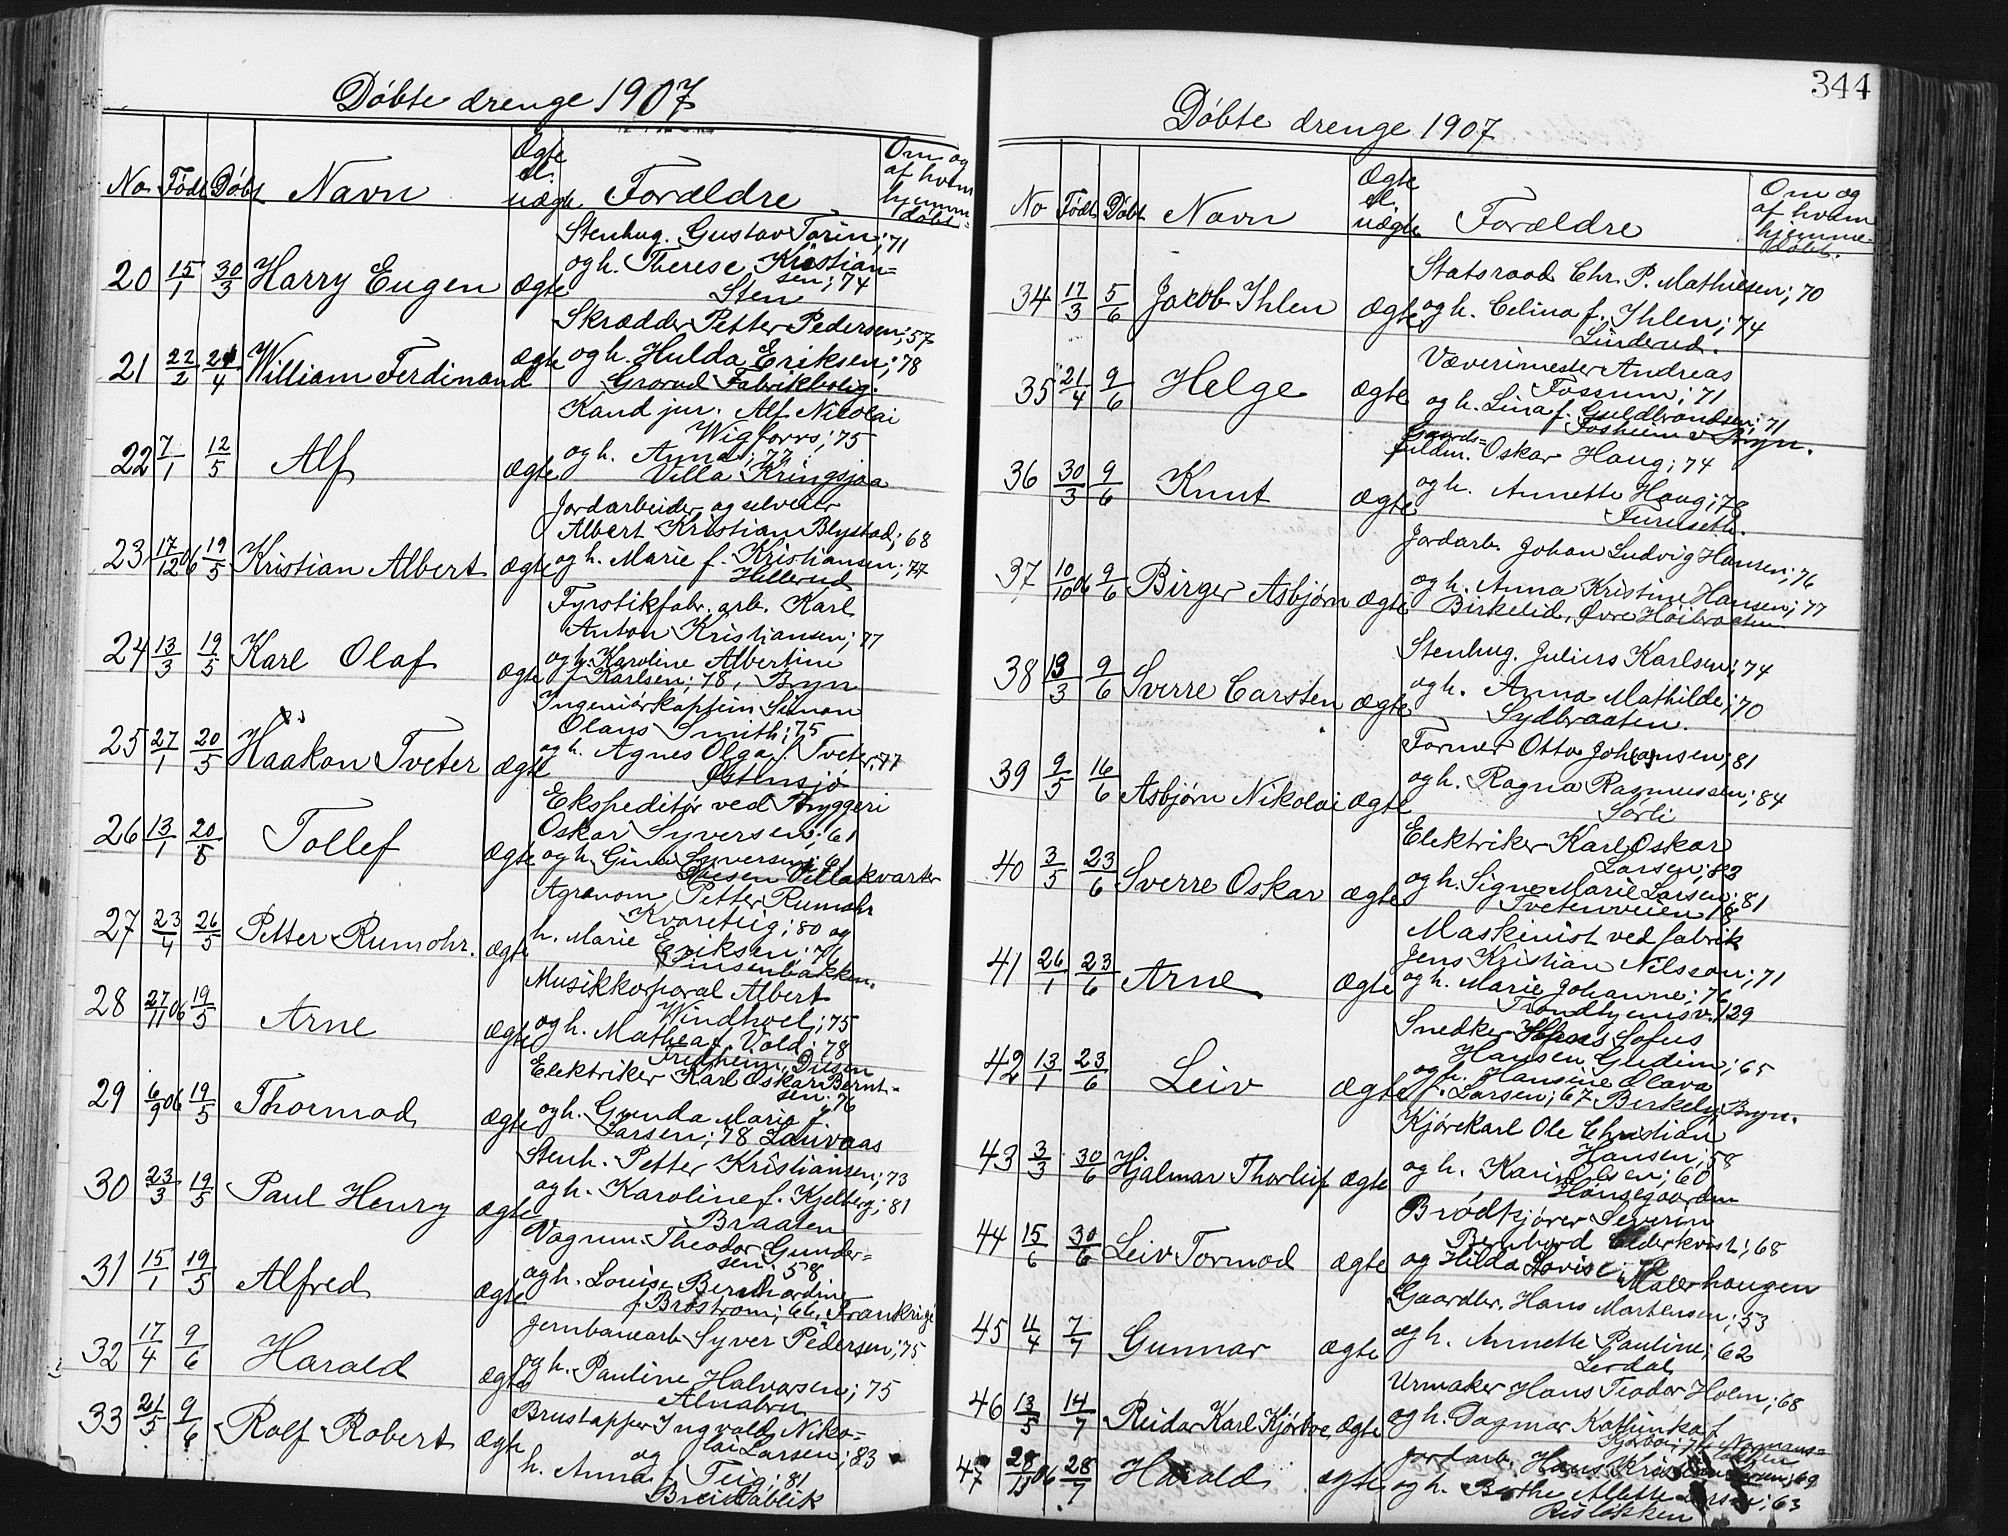 Døbte drenge 1907
No Født Døbt Navn Ægte el. uægte Forældre Om og af hvem hjemmedøbt
20 15/1 30/3 Harry Eugen ægte
Stenhug. Gustav Torin; 71
og h. Therese Kristian=
sen; 74
Sten
21 22/2 21/4 William Ferdinand ægte
Skrædder Petter Pedersen; 57
og h. Hulda Eriksen; 78
Grorud Fabrikbolig.
22 7/1 12/5 Alf ægte
Kand jur. Alf Nicolai
Wigforss; 75
og h. Anna; 77
Villa Kringsjaa
23 17/12 06 19/5 Kristian Albert ægte
Jordarbeider og selveier
Albert Kristian Blystad; 68
og h. Marie f. Kristiansen; 77
Hellerud
24 13/3 19/5 Karl Olaf ægte
Fyrstikfabr. arb. Karl
Anton Kristiansen; 77
og h. Karoline Albertine
f. Karlsen; 78, Bryn
25 27/1 20/5 Haakon Tveter ægte
Ingeniørkaptein Simon
Olaus Smith; 75
og h. Agnes Olga f. Tveter; 77
Østensjø
26 13/1 20/5 Tollef ægte
Ekspeditør ved Bryggeri
Oskar Syversen; 61
og h. Gina Syversen; 61
Villakvarter
27 23/4 26/5 Petter Rumohr. ægte
Agronom Petter Rumohr
Kvareteig; 80 og
h. Marie Eriksen; 76
28 27/11 06 19/5 Arne ægte
Musikkorporal Albert
Windhoel; 75
og h. Mathea f. Vold; 78
Fredheim, Disen
29 6/9 06 19/5 Thormod ægte
Elektriker Karl Oskar Bernt=
sen; 76
og h. Gunda Marie f.
Larsen; 78 Lauvaas
30 23/3 19/5 Paul Henry ægte
Stenh. Petter Kristiansen; 73
og h. Karoline f. Kjelberg; 81
Braaten
31 15/1 19/5 Alfred ægte
Vognm. Theodor Gunder=
sen; 58
og h. Louise Bernhardine
f. Brostrøm; 66, Frankrige
32 17/4 9/6 Harald ægte
Jernbanearb. Syver Pedersen; 75
og h. Pauline Halvorsen; 75
Alnabru
33 21/5 9/6 Rolf Robert ægte
Brustapper Ingvald Niko=
lai Larsen; 83
og
h. Anna f. Teig; 81
Breidablik
344
Døbte drenge 1907
No Født Døbt Navn Ægte el. uægte Forældre Om og af hvem hjemme=døbt.
34 17/3 5/6 Jacob Ihlen ægte
Statsraad Chr. P. Mathiesen; 70
og h. Celina f. Ihlen; 74
Linderud.
35 21/4 9/6 Helge ægte
Væverimester Andreas
Fossum; 71
og h. Lina f. Guldbrandsen; 71
Fosheim v Bryn.
36 30/3 9/6 Knut ægte
Gaards=
fuldm. Oskar Haug; 74
og h. Annette Haug; 78
Furuseth.
37 10/10 06 9/6 Birger Asbjørn ægte
Jordarb. Johan Ludvig Hansen; 76
og h. Anna Kristine Hansen; 77
Birkelid, Øvre Høibraaten
38 13/3 9/6 Sverre Carsten ægte
Stenhug. Julius Karlsen; 74
og h. Anna Mathilde; 70
Sydbraaten.
39 9/5 16/6 Asbjørn Nikolai ægte
Former Otto Johansen; 81
og h. Ragna Rasmussen; 84
Sørli
40 3/5 23/6 Sverre Oskar ægte
Elektriker Karl Oskar
Larsen; 83
og h. Signe Marie Larsen; 81
Tvetenveien 18
41 26/1 23/6 Arne ægte
Maskinist ved fabrik
Jens Kristian Nilsson; 71
og h. Marie Johanne; 76
Trondhjemsv. 129
42 13/1 23/6 Leiv ægte
Snedker Hans Sofus
Hansen Gudim; 65
og h. Hansine Olava
f. Larsen; 67 Berkely, Bryn.
43 3/3 30/6 Hjalmar Thorleif ægte
Kjørekarl Ole Christian
Hansen; 58
og h. Karin Olsen; 60
Hønsegaarden
44 15/6 30/6 Leiv Tormod ægte
Brødkjører Severin
Bernhard Cederkvist; 68
og Hilda Lovise
Malerhaugen
45 4/4 7/7 Gunnar ægte
Gaardbr. Hans Martensen; 53
og h. Annette Pauline; 62
Lerdal
46 13/5 14/7 Reidar Karl Kjørboe ægte
Urmaker Hans Teodor Holm; 68
og h. Dagmar Kathinka f.
Kjørboe; 74 Normans=
løkken
47 28/11 06 28/7 Harald ægte
Jordarb. Hans; 69
og h. Berthe Allette; 63
Risløkken